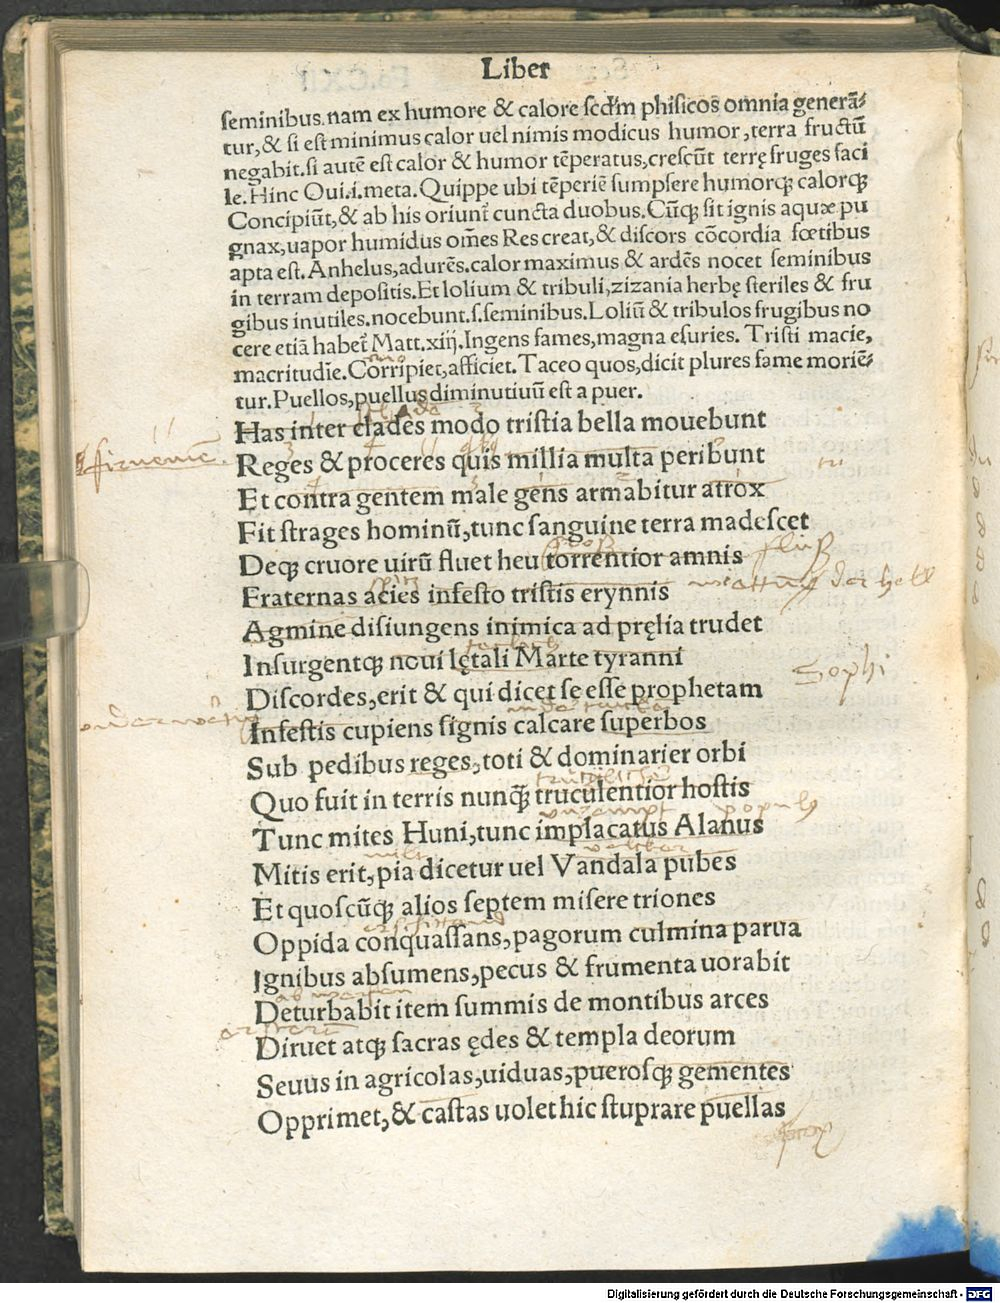 Liber
seminibus. nam ex humore & calore scd̃m phisicos omnia generã⸗
tur, & si est minimus calor uel nimis modicus humor, terra fructũ
negabit. si autẽ est calor & humor tẽperatus, crescũt terrę fruges faci
le. Hinc Oui. i. meta. Quippe ubi tẽperiẽ sumpsere humorq; calorq;
Concipiũt, & ab his oriunt̃ cuncta duobus. Cũq; sit ignis aquæ pu
gnax, uapor humidus om̃es Res creat, & discors cõcordia fœtibus
apta est. Anhelus, adurẽs. calor maximus & ardẽs nocet seminibus
in terram depositis. Et lolium & tribuli, zizania herbę steriles & fru
gibus inutiles. nocebunt. s. seminibus. Loliũ & tribulos frugibus no
cere etiã habet̃ Matt. xiij. Ingens fames, magna esuries. Tristi macie,
macritudĩe. Corripiet, afficiet. Taceo quos, dicit plures fame moriẽ⸗
tur. Puellos, puellus diminutiuũ est a puer.
Has inter clades modo tristia bella mouebunt
Reges & proceres quis millia multa peribunt
Et contra gentem male gens armabitur atrox
Fit strages hominũ, tunc sanguine terra madescet
Deq; cruore uirũ fluet heu torrentior amnis
fluß
Fraternas acies infesto tristis erynnis
der hell
Agmine disiungens inimica ad pręlia trudet
Insurgentq; noui lętali Marte tyranni
Sophi
Discordes, erit & qui dicet se esse prophetam
Infestis cupiens signis calcare superbos
Sub pedibus reges, toti & dominarier orbi
Quo fuit in terris nunq̃; truculentior hostis
populus
Tunc mites Huni, tunc implacatus Alanus
Mitis erit, pia dicetur uel Vandala pubes
Et quoscũq; alios septem misere triones
Oppida conquassans, pagorum culmina parua
Ignibus absumens, pecus & frumenta uorabit
Deturbabit item summis de montibus arces
Diruet atq; sacras ędes & templa deorum
Seuus in agricolas, uiduas, puerosq; gementes
Opprimet, & castas uolet hic stuprare puellas
Digitalisierung gefördert durch die Deutsche Forschungsgemeinschaft - DFG